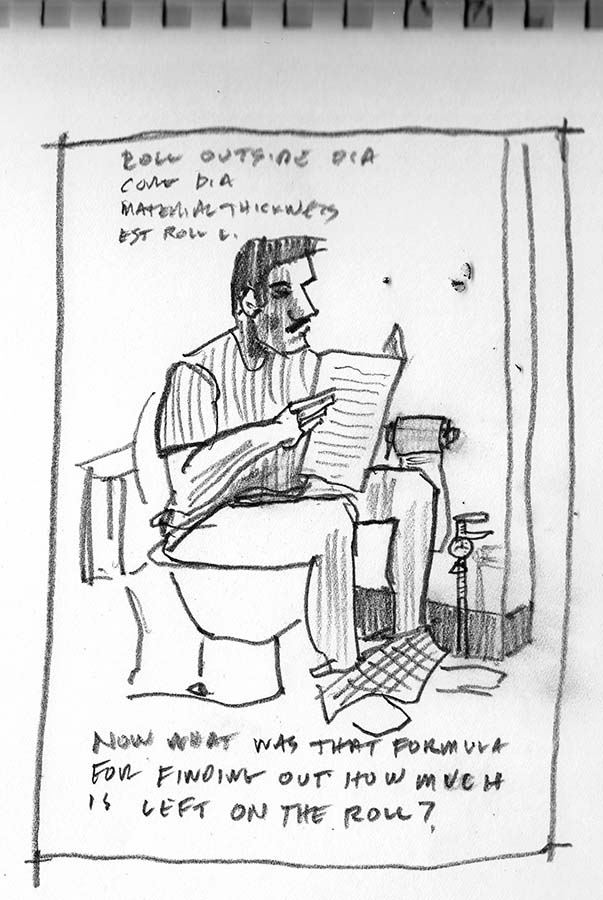 ROLL OUTSIDE DIA
CORE DIA
MATERIAL THICKNESS
EST ROLL L.
NOW WHAT WAS THAT FORMULA
FOR FINDING OUT HOW MUCH
IS LEFT ON THE ROLL?